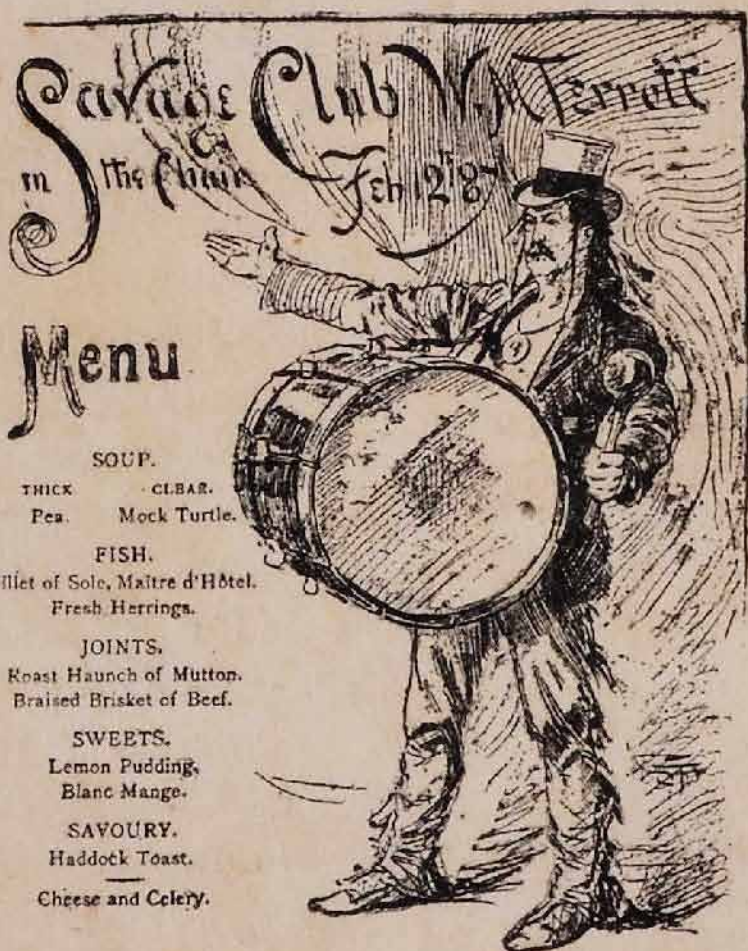 Savage Club W. M. Terrott
in the Chair Feb 12th 87
Menu
SOUP.
THICK CLEAR.
Pea. Mock Turtle.
FISH.
illet of Sole, Maître d'Hôtel.
Fresh Herrings.
JOINTS.
Roast Haunch of Mutton.
Braised Brisket of Beef.
SWEETS.
Lemon Pudding,
Blanc Mange.
SAVOURY.
Haddock Toast.
Cheese and Celery.